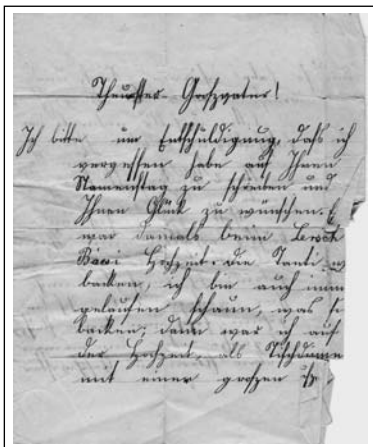 Theurster Groszvater!
Ich bitte um Entschuldigung, dass ich
vergessen habe auf Ihren
Namenstag zu schreiben und
Ihnen Glück zu wünschen. E
war damals beim
Hochzeit. Die Tanti
backen, ich bin auch
gelaufen schaun, was si
backen; dann war ich auf
der Hochzeit, als Tischdame
mit einer groszen